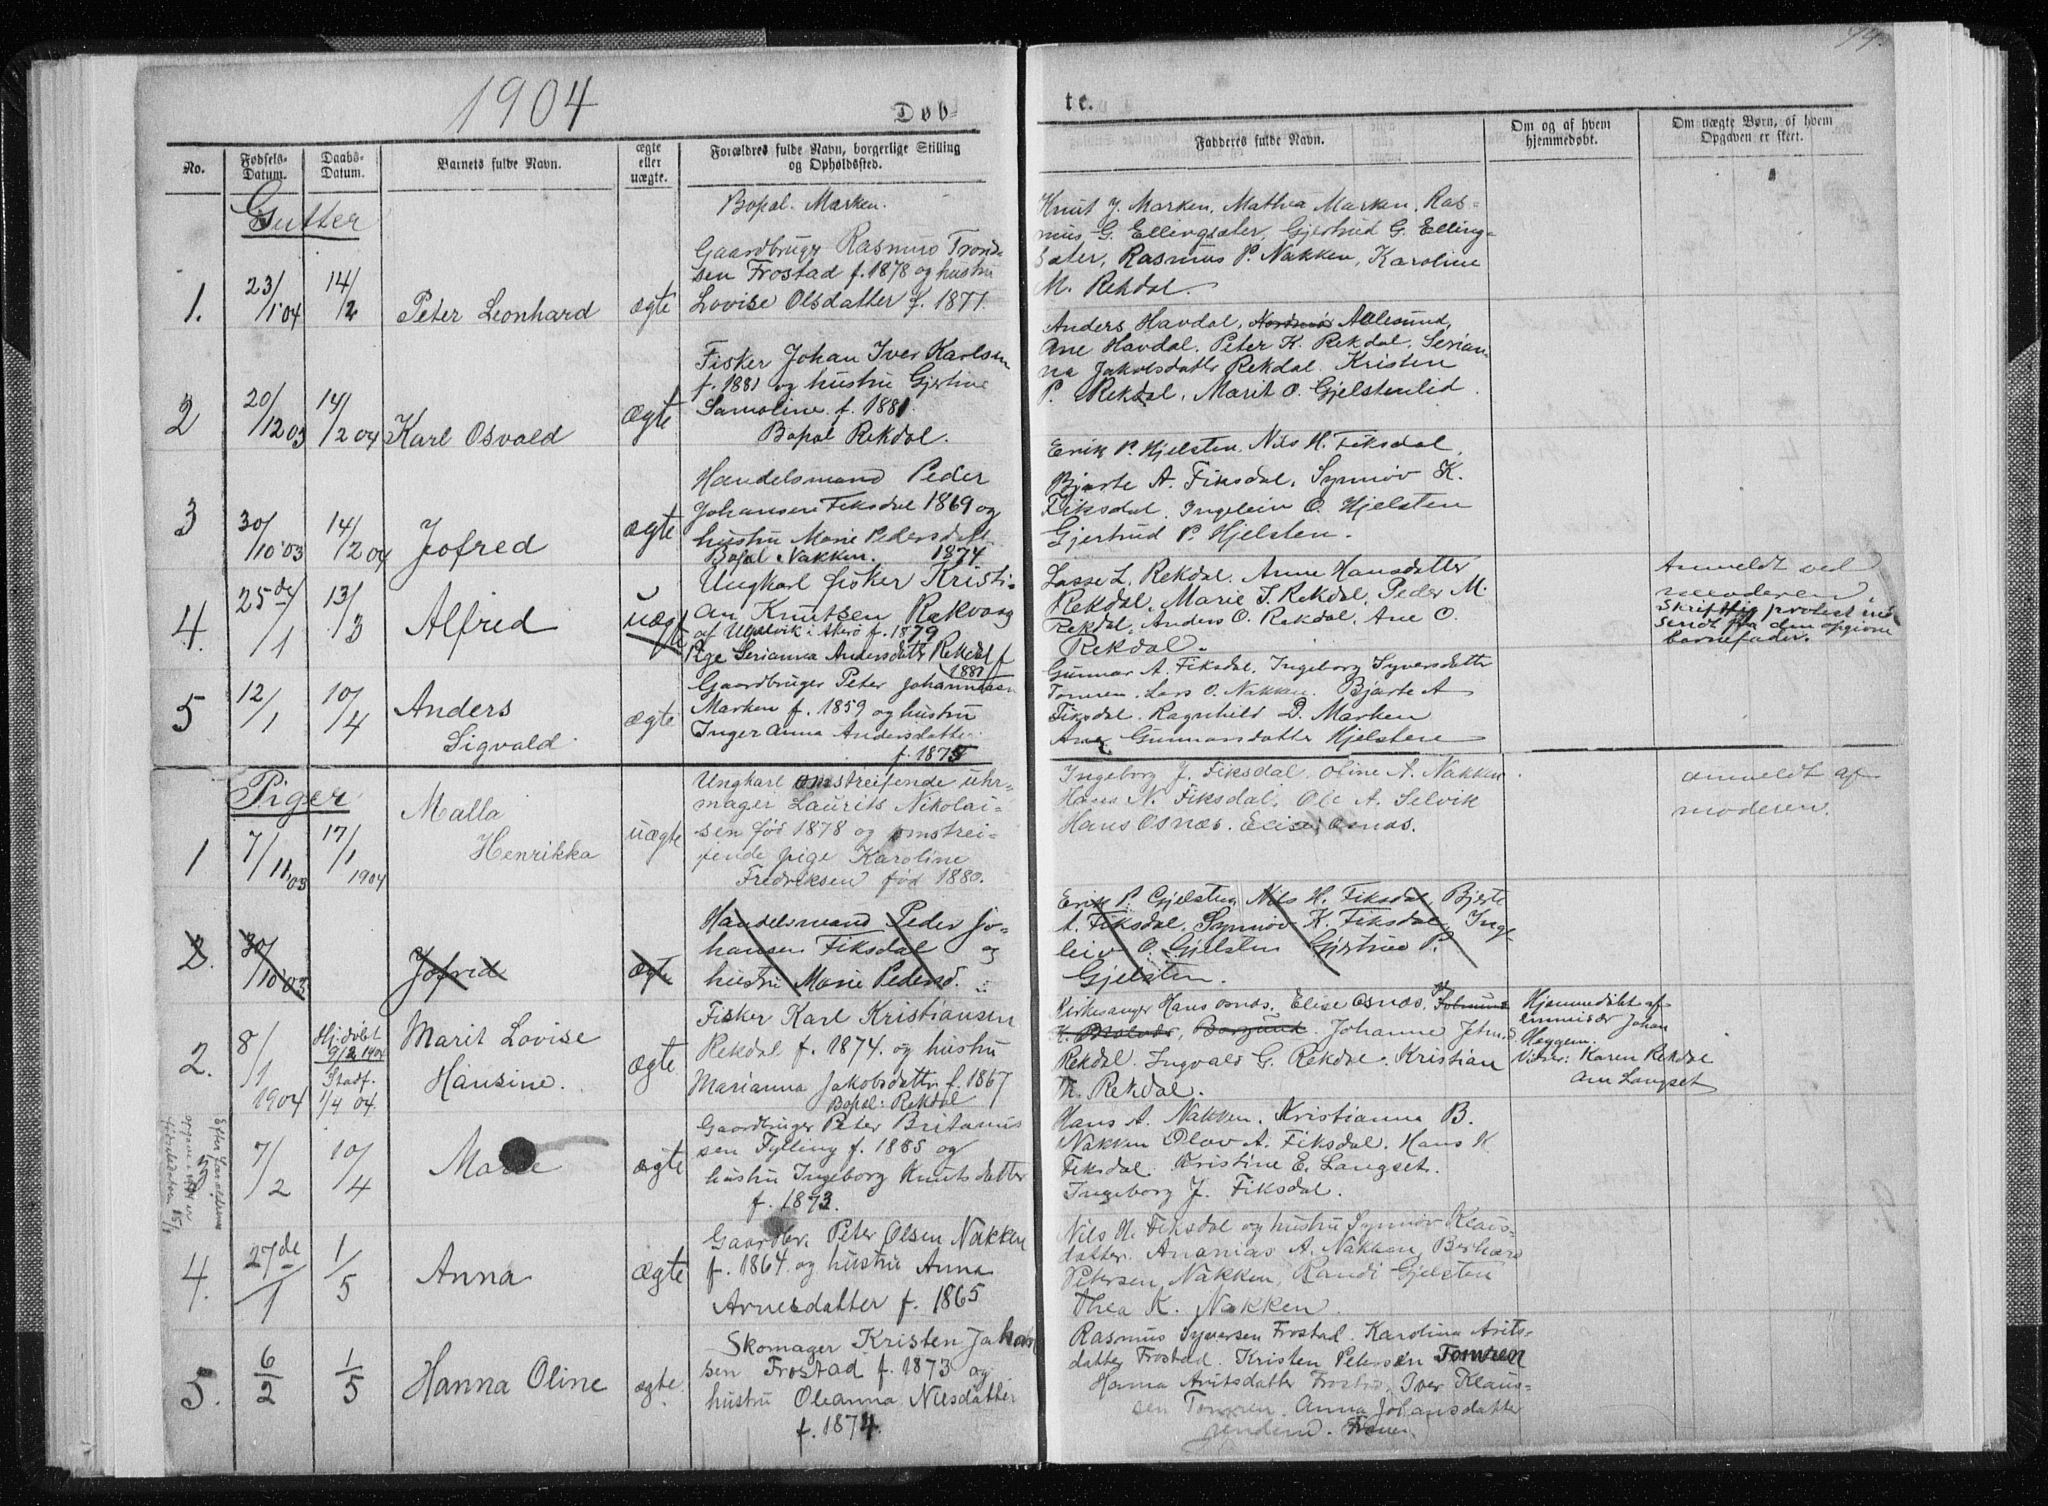 1904
Døb-
te.
No.
Fødsels-
Datum.
Daabs-
Datum.
Barnets fulde Navn.
ægte
eller
uægte.
Forældres fulde Navn, borgerlige Stilling
og Opholdssted.
Fadderes fulde Navn.
Om og af hvem
hjemmedøbt.
Om uægte Børn, af hvem
Opgaven er skeet.
Gutter
1.
23/1 '04
14/2
Peter Leonhard
ægte
Bopal. Marken.
Gaardbrugr Rasmus Trond-
sen Frostad f. 1878 og hustru
Lovise Olsdatter f. 1871.
Knut J. Marken, Mathea Marken, Ras-
mus G. Ellingsæter, Gjertrud G. Elling-
sæter, Rasmus P. Nakken, Karoline
M. Rekdal.
2
20/12 03
14/2 04
Karl Osvald
ægte
Fisker Johan Iver Karlsen
f. 1881 og hustru Gjertine
Samoline f. 1881.
Bopal Rekdal.
Anders Havdal, Aalesund,
Ane Havdal, Peter K. Rekdal, Serian-
na Jakobsdatter Rekdal. Kristen
P. Rekdal, Marit O. Gjelstenlid
3
30/10 '03
14/2 04
Jofred
ægte
Handelsmand Peder
Johansen Fiksdal 1869 og
hustru Marie Pedersdatt.
Bopal Nakken. 1874
Erik P. Hjelsten, Nils H. Fiksdal,
Bjarte A. Fiksdal, Synnøv K.
Fiksdal, Ingeleiv O. Hjelsten
Gjertrud P. Hjelsten.
4.
25de/1
13/3
Alfred
uægte
Ungkarl fisker Kristi-
an Knutsen Rakvaag
af i Akerø f. 1879
Pige Serianna Andersdatter Rekdal f
1881
Lasse L. Rekdal, Anne Hansdatter
Rekdal, Marie J. Rekdal, Peder M.
Rekdal, Anders O. Rekdal, Ane O.
Rekdal.
Anmeldt ved
moderen,
Skriftlig protest ind-
sendt fra den opgivne
barnefader.
5
12/1
10/4
Anders
Sigvald
ægte
Gaardbruger Peter Johannessn
Marken f. 1859 og hustru
Inger Anna Andersdatter
f. 1875
Gunnar A. Fiksdal, Ingeborg Syversdatter
Tomren. Lars O. Nakken. Bjarte A
Fiksdal. Ragnhild D. Marken
Ane Gunnarsdatter Hjelsten
Piger
1
7/11 '03
17/1 1904
Malla
Henrikka
uægte
Ungkarl omstreifende uhr-
mager Laurits Nikolai-
sen født 1878 og omstrei-
fende pige Karoline
Fredriksen født 1880.
Ingeborg J. Fiksdal, Oline A. Nakken
Hans N. Fiksdal, Ole A. Selvik
Hans Osnæs, Elise Osnæs.
anmeldt af
moderen.
2.
30/10 '03
Jofred
ægte
Handelsmand Peder Jo-
hansen Fiksdal og
hustru Marie Pedersd.
Erik P. Gjelsten, Nils H. Fiksdal, Bjerte
A. Fiksdal, Synnøv K. Fiksdal, Inge-
leiv O. Gjelsten Gjertrud P.
Gjelsten.
2.
8/1 1904
Hj.døbt
9/2 1904
Stadf.
1/4 04.
Marit Lovise
Hansine.
ægte
Fisker Karl Kristiansen
Rekdal f. 1874. og hustru
Marianna Jakobsdattr. f. 1867
Bopal: Rekdal
Kirkesanger Hans Osnæs, Elise Osnæs,
Borgund. Johanne
Rekdal, Ingvald G. Rekdal, Kristian
Rekdal.
Hjemmedøbt af
emmisær Johan
Heggem.
Vidner: Karen Rekdal
Ane Langset
7/2
10/4
Marie
ægte
Gaardbruger Peter Britanus
sen Fylling f. 1885 og
hustru Ingeborg Knutsdatter
f. 1873.
Hans A. Nakken, Kristianna B.
Nakken Olav A. Fiksdal. Hans H
Fiksdal. Kristine E. Langset.
Ingeborg J. Fiksdal.
Efter Foræeldrens
opgave i er
fødselsdatoen 15/1
4.
27de/1
1/5
Anna
ægte
Gaardbr. Peter Olsen Nakken
f. 1864 og hustru Anna
Arnesdatter f. 1865
Nils H. Fiksdal og hustru Synnøv Klaus-
datter. Ananias A. Nakken, Berhard
Petersen Nakken, Randi Gjelsten
Thea K. Nakken.
5.
6/2
1/5
Hanna Oline
ægte.
Skomager Kristen Johan
sen Frostad f. 1873 og
hustru Oleanna Nilsdatter
f. 1874.
Rasmus Syversen Frostad. Karolina Arits-
datter Frostad. Kristen Petersen Tomren
Hanna Aritsdatter Frostad, Iver Klaus-
sen Tomren. Anna Johansdatter